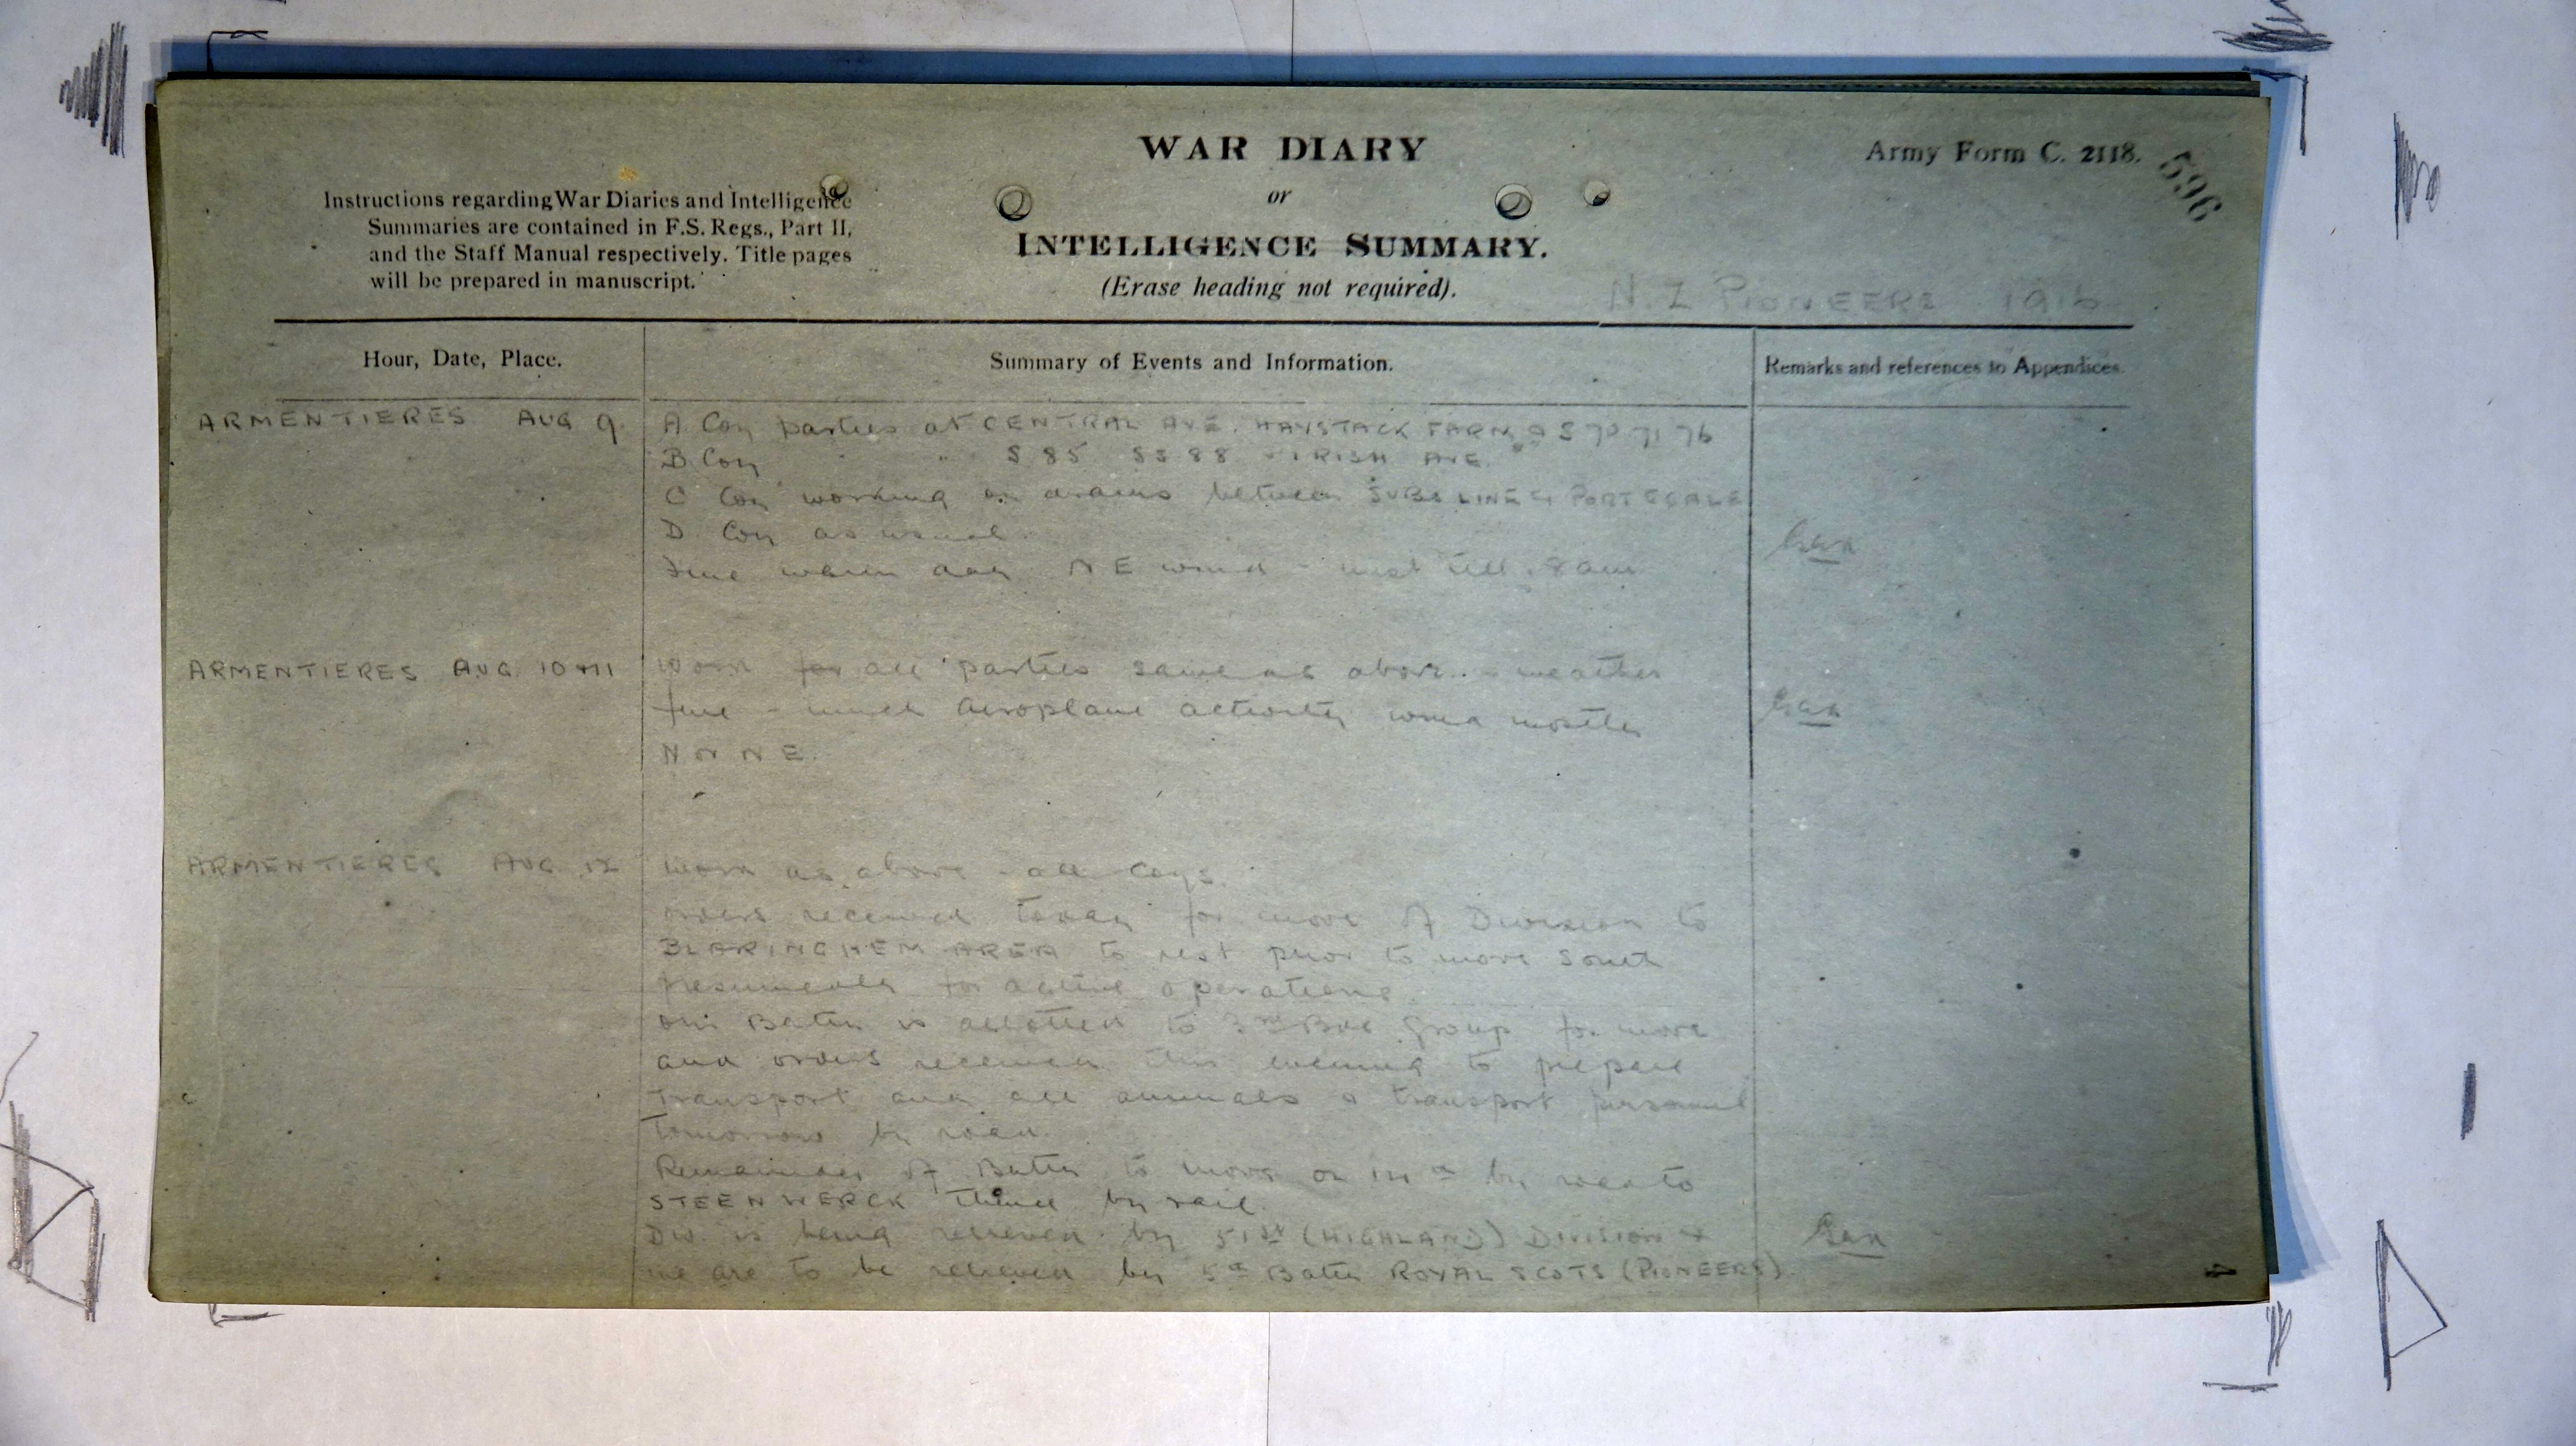 WAR DIARY
or
INTELLIGENCE SUMMARY.
(Erase heading not required).
Army Form C. 2118.
696
Instructions regarding War Diaries and Intelligence
Summaries are contained in F.S. Regs., Part II,
and the Staff Manual respectively. Title pages
will be prepared in manuscript.
N.Z PIONEERS 1916
Hour, Date, Place.
Summary of Events and Information.
Remarks and references to Appendices.
ARMENTIERES AUG 9
A Coy parties at CENTRAL AVE. HAYSTACK FARM S 70 71 76
B Coy " " S 85 SS 88 - IRISH AVE.
C Coy working on drains between SUBS LINE & PORT EGALE
D Coy as usual
Fine warm day NE wind - mist till 8 am
ARMENTIERES AUG 10 & 11
Work for all parties same as above. - weather
fine - much aeroplane activity wind mostly
N or N E.
ARMENTIERES AUG 12
Work as above - all Coys.
Orders received today for move of Division to
BLARINGHEM AREA to rest prior to move South
presumably for active operations.
Our Battn is allotted to 3rd Bde Group for move
and orders received this evening to prepare
transport and all animals & transport personnel
tomorrow by road.
Remainder of Battn to move on 14th by road to
STEENWERCK thence by rail.
Div. is being relieved by 51st (HIGHLAND) DIVISION &
we are to be relieved by 5th Battn ROYAL SCOTS (PIONEERS)
4